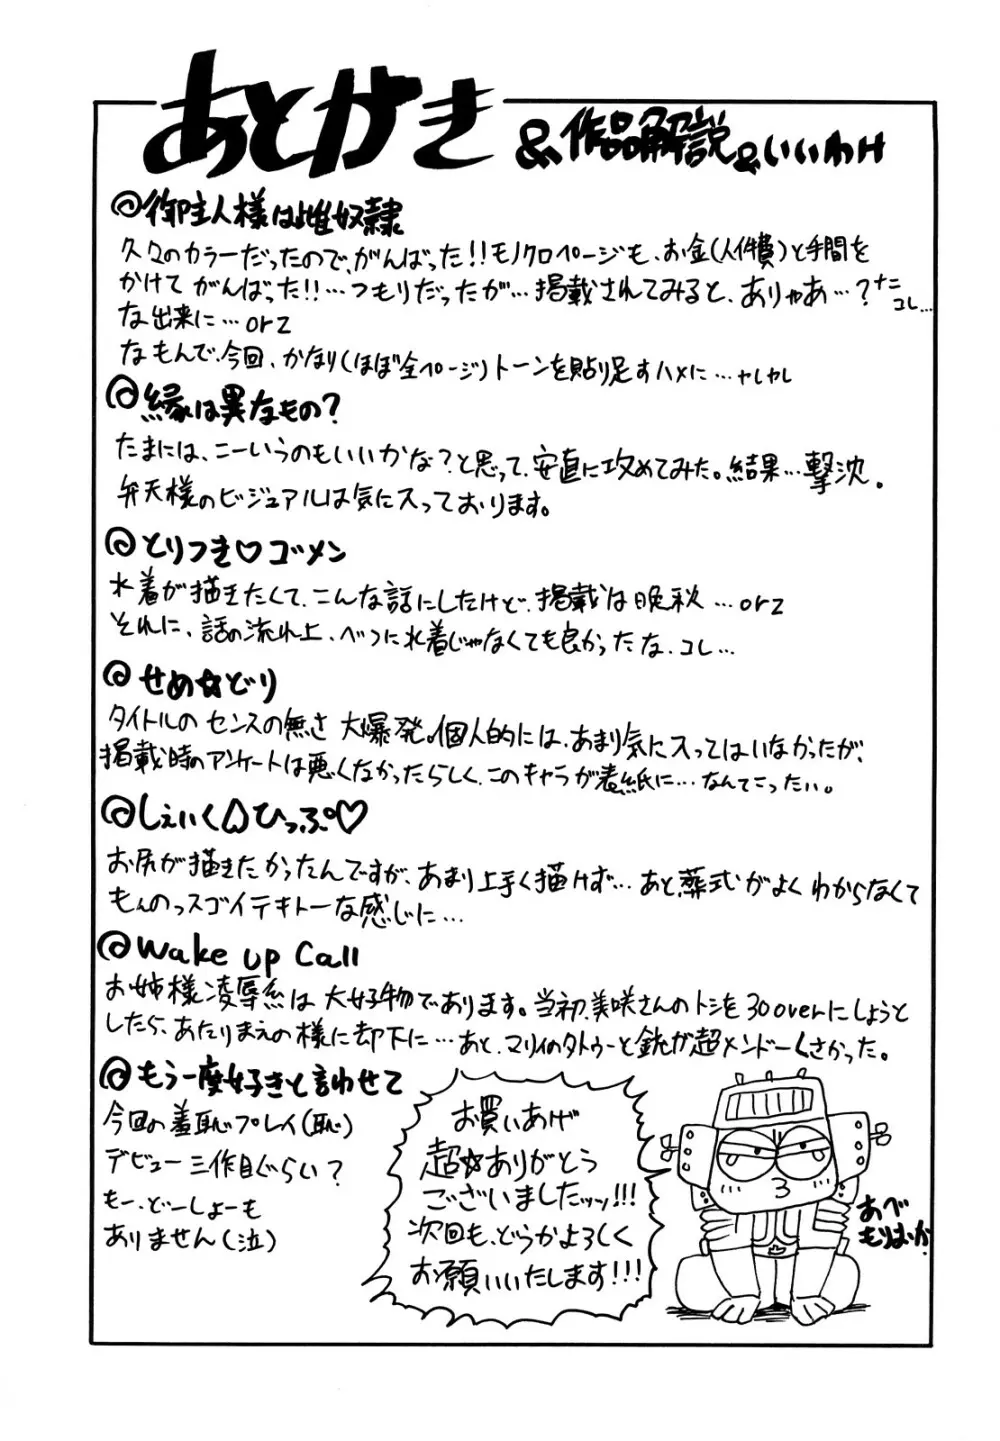 あとがき &作品解説&いいわけ
@御主人様は雌奴隷
久々のカラーだったので、がんばった!!モノクロページも、お金(人件費)と手間を
かけて がんばった!!…つもりだったが…掲載されてみると、ありゃあ…?ナニコレ…
な出来に…orz
なもんで、今回、かなり(ほぼ全ページ)トーンを貼り足すハメに…ヤレヤレ
@縁は異なもの?
たまには、こーいうのもいいかな?と思って、安直に攻めてみた。結果…撃沈。
弁天様のビジュアルは気に入っております。
@とりつき♡ゴメン
水着が描きたくて、こんな話にしたけど、掲載は晩秋…orz
それに、話の流れ上、べつに水着じゃなくても良かったな、コレ…
@せめ☆どり
タイトルの センスの無さ 大爆発。個人的には、あまり気に入ってはいなかったが、
掲載時のアンケートは悪くなかったらしく、このキャラが表紙に…なんてこったい。
@しぇいく♤ひっぷ♡
お尻が描きたかったんですが、あまり上手く描けず…あと、葬式がよく わからなくて
もんのっスゴイテキトーな感じに…
@Wake up Call
お姉様凌辱系は 大好物であります。当初、美咲さんのトシを30overにしようと
したら、あたりまえの様に却下に…あと、マリィのタトゥーと銃が超メンドーくさかった。
@もう一度好きと言わせて
今回の羞恥プレイ(恥)
デビュー三作目ぐらい?
もー、どーしょーも
ありません(泣)
お買いあげ
超☆ありがとう
ございましたッッ!!!
次回も、どうかよろしく
お願いいたします!!!
あべ
もりおか